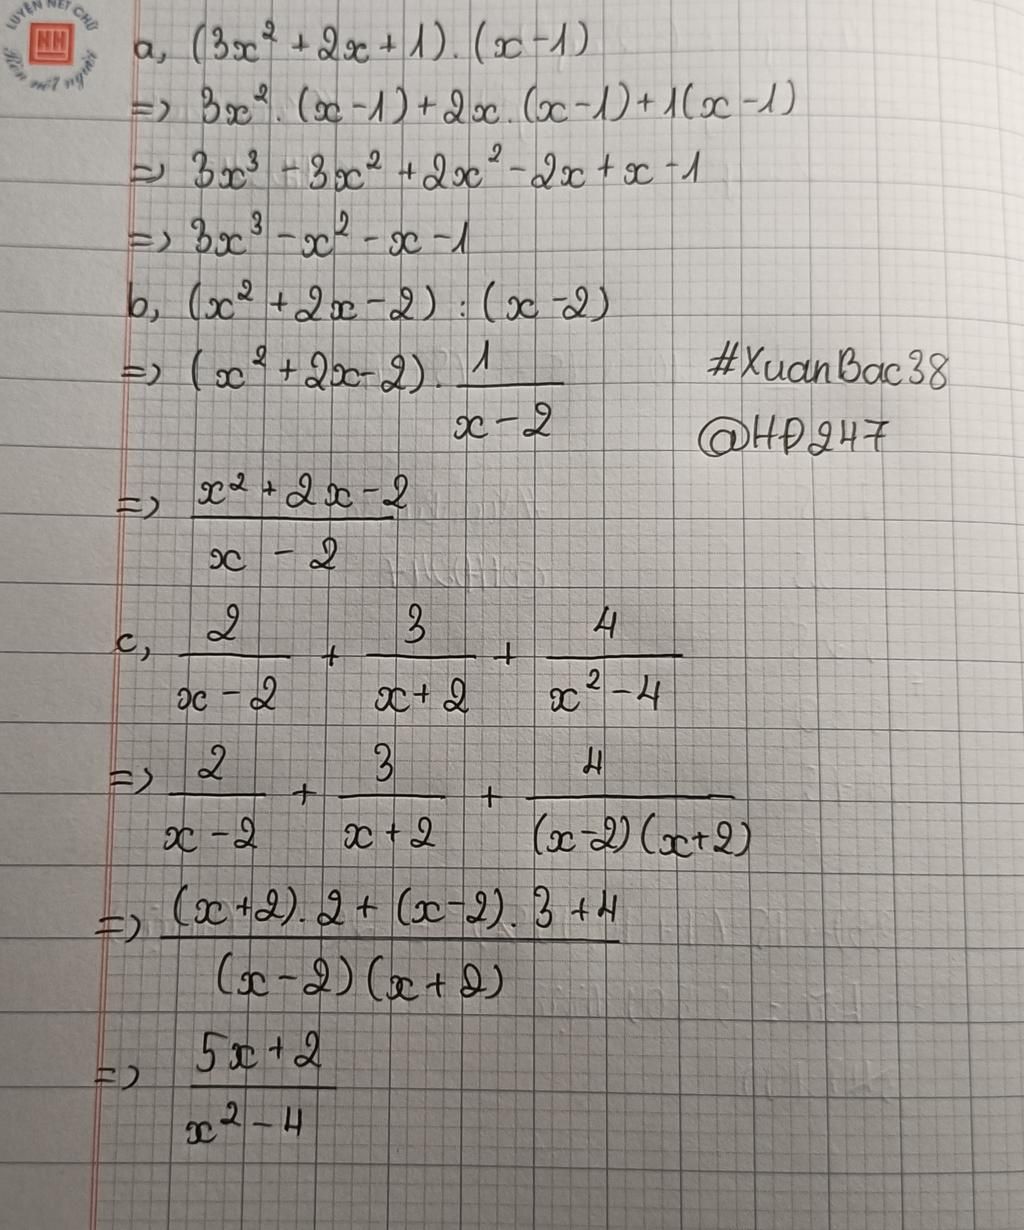 LUYỆN NÉT CHỮ
NH
Rèn nét người
a, (3x² + 2x + 1) . (x - 1)
=> 3x² . (x - 1) + 2x . (x - 1) + 1(x - 1)
=> 3x³ - 3x² + 2x² - 2x + x - 1
=> 3x³ - x² - x - 1
b, (x² + 2x - 2) : (x - 2)
=> (x² + 2x - 2) . 1/(x - 2)
#XuanBac38
@HĐ247
=> (x² + 2x - 2)/(x - 2)
c, 2/(x - 2) + 3/(x + 2) + 4/(x² - 4)
=> 2/(x - 2) + 3/(x + 2) + 4/((x - 2)(x + 2))
=> ((x + 2) . 2 + (x - 2) . 3 + 4)/((x - 2)(x + 2))
=> (5x + 2)/(x² - 4)